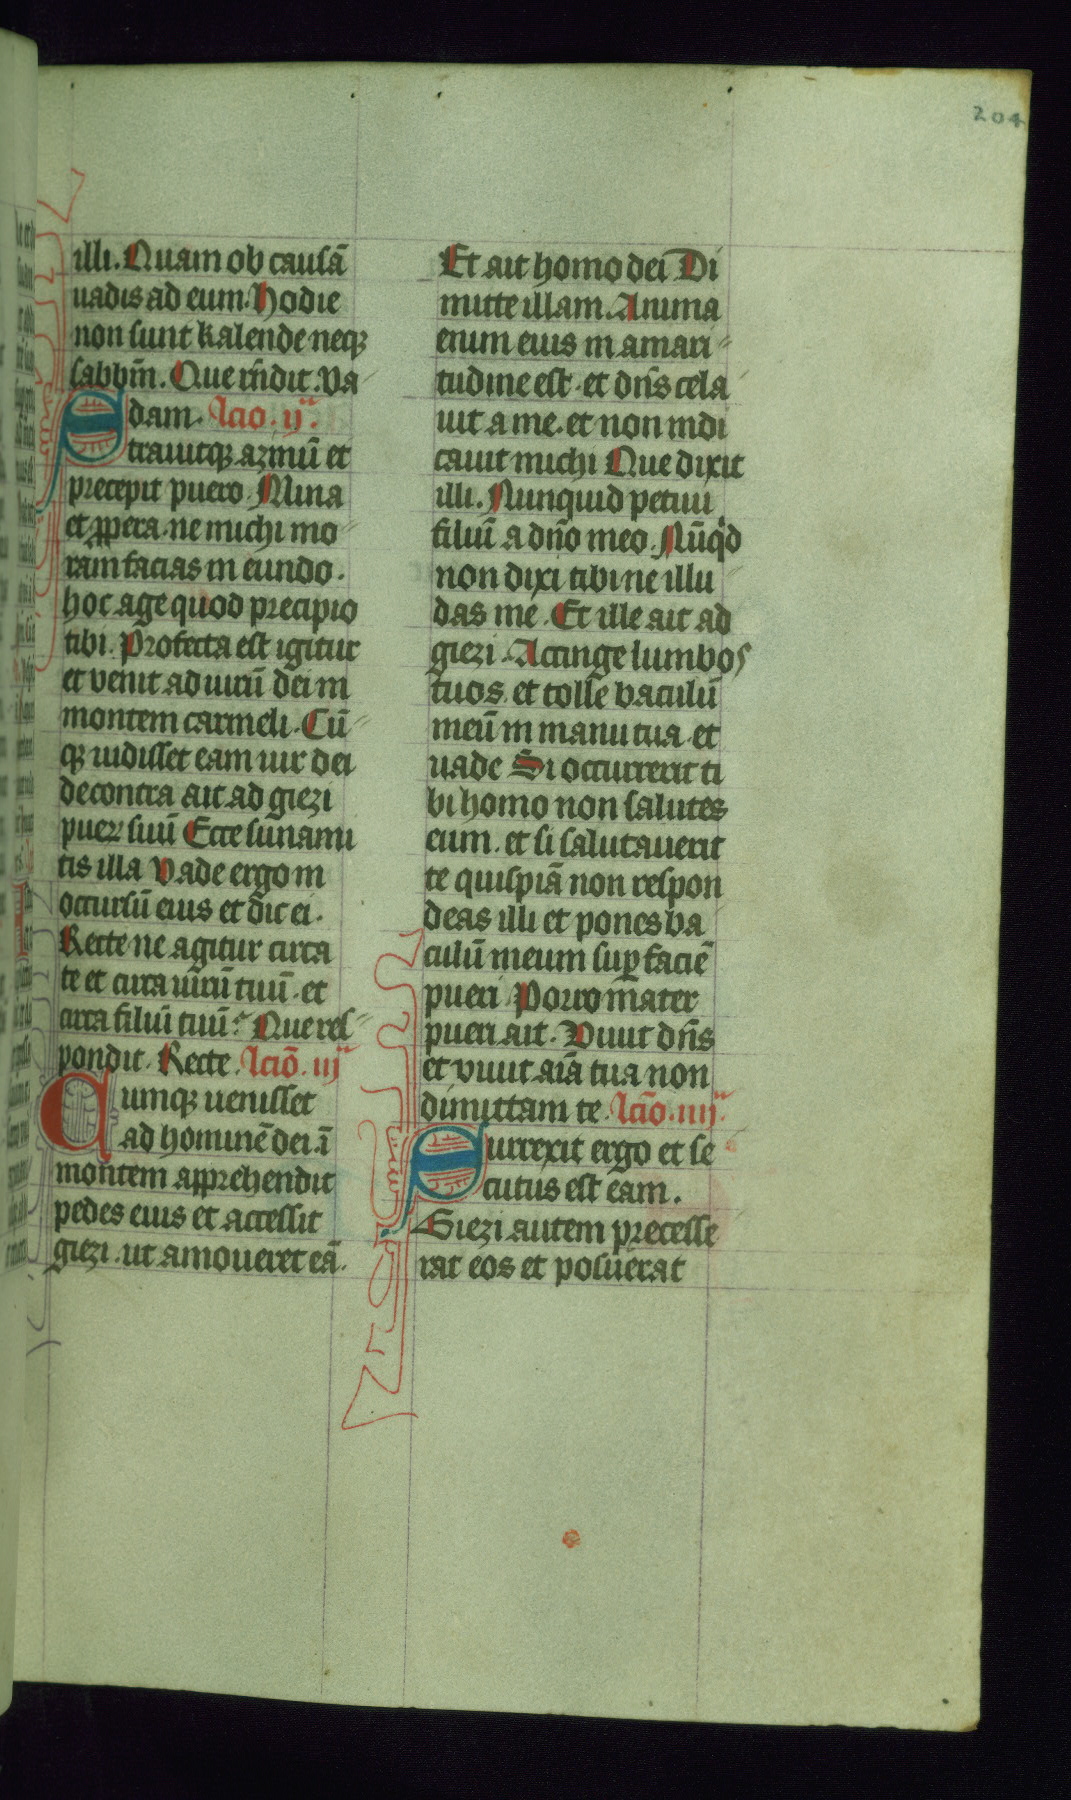 204
illi. Quam ob causā
uadis ad eum. Hodie
non sunt kalende neqꝫ
sabbm̄. Que rn̄dit. Va
dam. lcio. ijᵃ.
Strauitqꝫ azinū et
precepit puero. Mina
et ꝓpera. ne michi mo
ram facias in eundo.
hoc age quod precipio
tibi. Profecta est igitur
et venit ad uirū dei in
montem carmeli. Cū
qꝫ uidisset eam uir dei
decontra ait ad giezi
puerꝫ suū Ecce sunami
tis illa Vade ergo in
occursū eius et dic ei.
Recte ne agitur circa
te et circa uirū tuū. et
circa filiū tuū? Que res
pondit. Recte. lcio̅. iijᵃ
Cumqꝫ uenisset
ad hominē dei. ī
montem apprehendit
pedes eius et accessit
giezi. ut amoueret eā.
Et ait homo dei Di
mitte illam. Anima
enim eius in amari
tudine est. et dn̄s cela
uit a me. et non indi
cauit michi Que dixit
illi. Nunquid petiui
filiū a dn̄o meo. Nūqͥd
non dixi tibi ne illu
das me. Et ille ait ad
giezi. Accinge lumbos
tuos. et tolle baculū
meū in manu tua. et
uade Si occurrerit ti
bi homo non salutes
eum. et si salutauerit
te quispiā non respon
deas illi et pones ba
culū meum suꝑ faciē
pueri Porro mater
pueri ait. Viuit dn̄s
et viuit aīa tua non
dimittam te. lcio̅. iiijᵃ.
Surrexit ergo et se
cutus est eam.
Giezi autem precesse
rat eos et posuerat